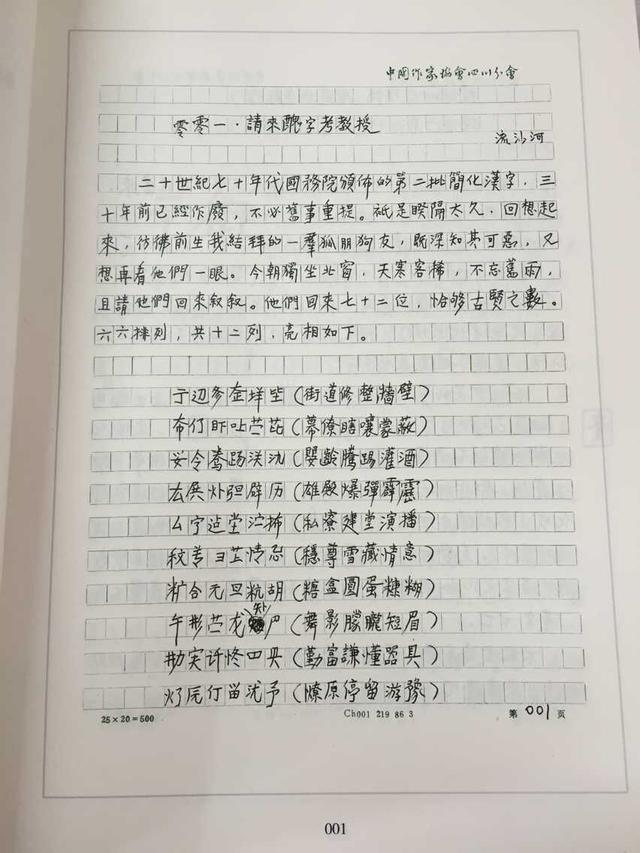 中国作家協會四川分會
零零一·請來醜字考教授
流沙河
二十世紀七十年代國務院頒佈的第二批簡化漢字，三
十年前已經作廢，不必舊事重提。祇是睽隔太久，回想起
來，彷彿前生我結拜的一羣狐朋狗友，既深知其可惡，又
想再看他們一眼。今朝獨坐北窗，天寒客稀，不忘舊雨，
且請他們回來叙叙。他們回來七十二位，恰够古賢之數。
六六排列，共十二列，亮相如下。
亍辺（街道修整牆壁）
仃（幕僚瞎嚷蒙蔽）
令（嬰齡騰踢灌酒）
历（雄殿爆彈霹靂）
厶宁（私寮建堂演播）
彐（穩尊雪藏情意）
合元旦粇胡（糖盒圓蛋糠糊）
午形龙知尸（舞影朦朧短眉）
实四（勤富謙懂器具）
仃予（燎原停留游豫）
25×20=500
Ch001 219 86 3
第001页
001